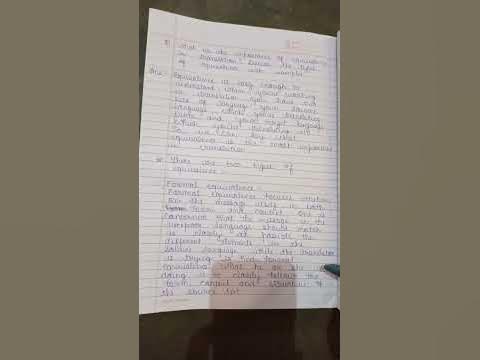 What is the importance of
in translation? Discuss the types
of equivalence with examples.
Ans. Equivalence is easy enough to
understand when you're working
on translation you have two
language
language which you're translating
from and your target language
which you're translating
So we can say that
equivalence is the most important
in translation
There are two types of
equivalence
Formal equivalence
Formal equivalence focuses attention
on the message itself in both
form and content. One is
concerned that the message in the
receptor language should match
as closely as possible the
different elements in the
source language. While the translator
is trying to find formal
equivalence what he or she
doing it closely follows the
form, content and structure of
the source text